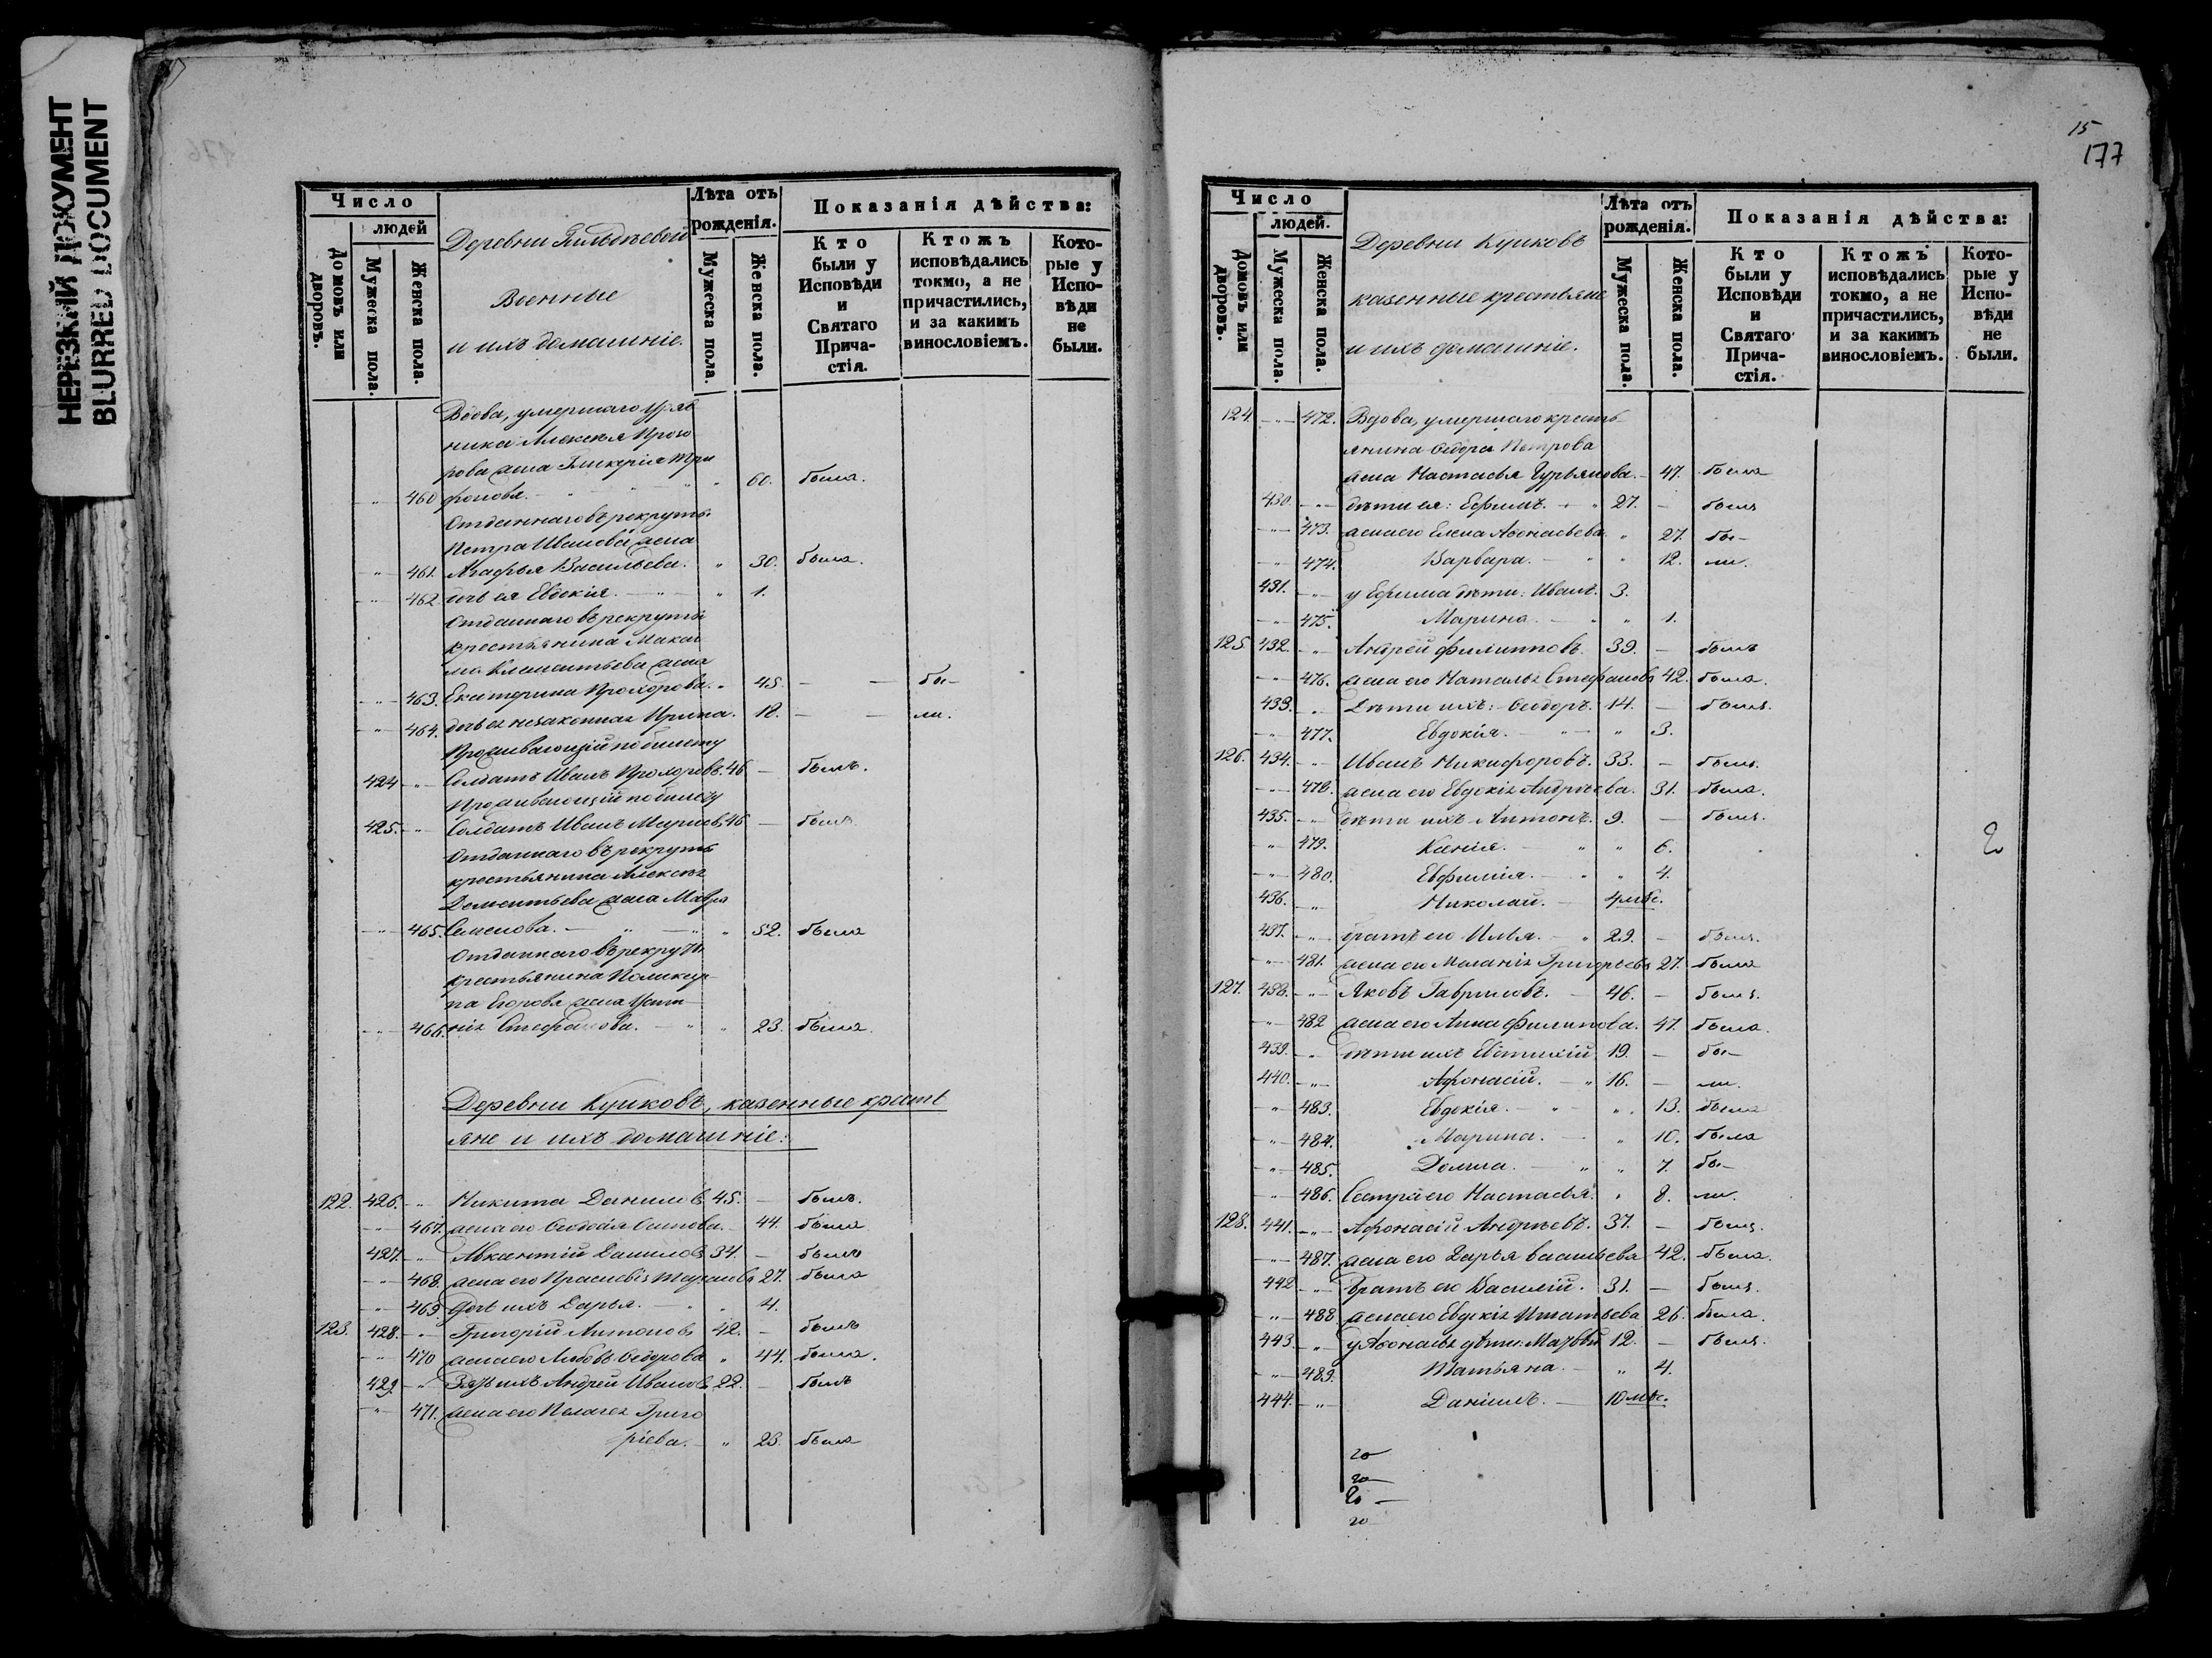 НЕРЕЗКИЙ ДОКУМЕНТ
BLURRED DOCUMENT
Число
людей
Домовъ или дворовъ.
Мужеска пола.
Женска пола.
Деревни
Военные
и ихъ домашніе.
Лѣта отъ рожденія.
Мужеска пола.
Женска пола.
Показанія дѣйства:
Кто были у Исповѣди и Святаго Прича-стія.
Ктожъ исповѣдались токмо, а не причастились, и за какимъ винословіемъ.
Кото-рые у Испо-вѣди не были.
Вдова, умершаго уряд
ника Алексѣя Прохо
рова жена Гликерія Три
460 фонова. 60. была.
Отданнаго въ рекруты
Петра Иванова жена
461. Агафья Васильева. 30. была.
462 дочь ея Евдокія. 1.
Отданнаго въ рекруты
крестьянина Макси
ма Клементьева жена
463. Екатерина Прохорова. 45. бы-
464. дочь ея незаконная Ирина. 18. ли.
Проживающій по билету
424 Солдатъ Иванъ Прохоровъ. 46 — былъ.
Проживающій по билету
425. Солдатъ Иванъ 46 — былъ.
Отданнаго въ рекруты
крестьянина Алексѣя
Дементьева жена Мавра
465. Семенова. 52. была
Отданнаго въ рекруты
крестьянина Поликар
па Егорова жена Усти
466. нія Стефанова. 23. была.
Деревни Куковъ, казенные кресть
яне и ихъ домашніе:
122. 426. Никита Данилов 45. — былъ.
467. жена его Феодосія Осипова. 44. была
427. Данилов 34. — былъ
468. жена его Прасковія 27. была
469. дочь ихъ Дарья. 4.
123. 428. Григорій Антонов 42. — былъ
470 жена его Любовь Федорова 44. была.
429. Зять ихъ Андрей Иванов 22. — былъ
471. жена его Пелагея Григо
ріева. 23. была
15
177
Число
людей.
Домовъ или дворовъ.
Мужеска пола.
Женска пола.
Деревни Куковъ
казенные крестьяне
и ихъ домашніе.
Лѣта отъ рожденія.
Мужеска пола.
Женска пола.
Показанія дѣйства:
Кто были у Исповѣди и Святаго Прича-стія.
Ктожъ исповѣдались токмо, а не причастились, и за какимъ винословіемъ.
Кото-рые у Испо-вѣди не были.
124. 472. Вдова, умершаго кресть-
янина Ѳедора Петрова
жена Настасья Гурьянова. 47. была
430. дѣти ея: Ефимъ. 27. — былъ
473. жена его Елена Аѳонасьева 27. бы-
474. Варвара. 12. ли.
431. у Ефима дѣти: Иванъ. 3.
475. Марина. 1.
125 432. Андрей Филипповъ. 39. — былъ
476. жена его Наталья Стефанова 42. была.
433. Дѣти ихъ: Ѳеодоръ. 14. — былъ.
477. Евдокія. 3.
126. 434. Иванъ Никифоровъ. 33. — былъ.
478. жена его Евдокія Андреева. 31. была.
435. дѣти ихъ Антонъ. 9. — былъ.
479. Ксенія. 6.
480. Евфимія. 4.
436. Николай. 4 мѣс.
437. братъ его Илья. 29. — былъ.
481. жена его Меланія Григорьева 27. была
127. 438. Яковъ Гавриловъ. 46. — былъ.
482 жена его Анна Филипова. 47. была.
439. дѣти ихъ Евтихій 19. — бы-
440. Афонасій. 16. — ли.
483. Евдокія. 13. была
484. Марина. 10. была
485. Домна. 7. бы-
486. Сестра его Настасья. 8. ли.
128. 441. Афонасій Андреевъ. 37. — былъ.
487. жена его Дарья Васильева 42. была.
442 братъ его Василій. 31. — былъ.
488 жена его Евдокія Игнатьева 26. была.
443. у Аѳонасья дѣти: Матвѣй 12. — былъ.
489. Татьяна. 4.
444. Даніилъ. 10 мѣс.